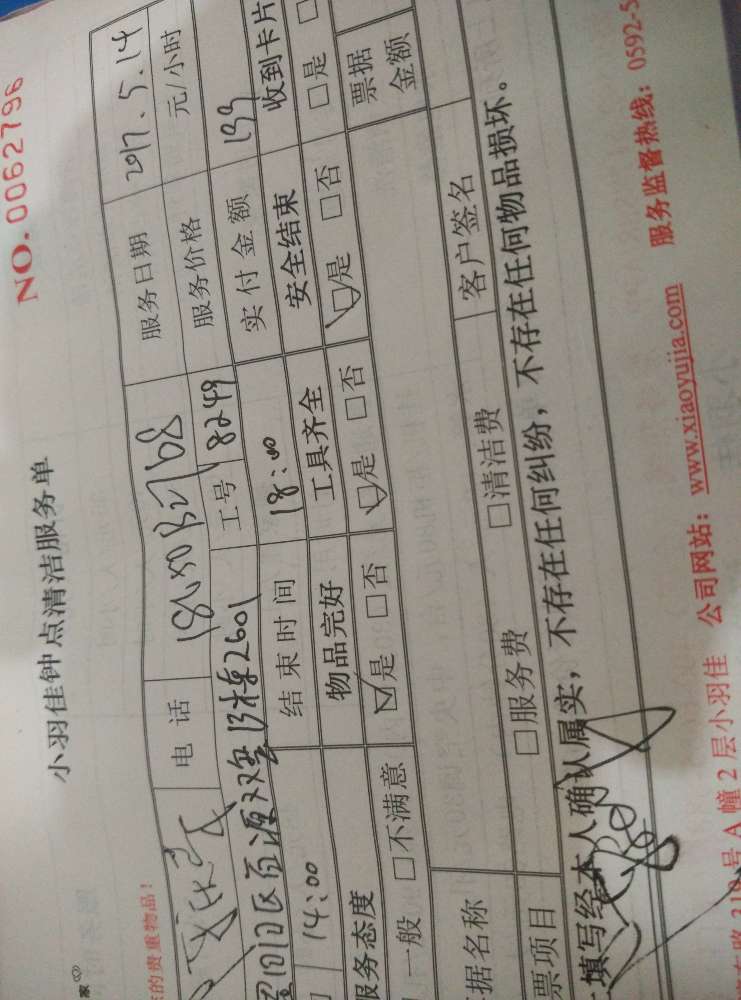 NO.0062796
小羽佳钟点清洁服务单
的贵重物品！
电话 服务日期 2017.5.14
工号 8249 服务价格 元/小时
13栋2601
14:00 结束时间 18:00 实付金额 133
服务态度 物品完好 工具齐全 安全结束 收到卡片
一般 □不满意 ☑是 □否 ☑是 □否 ☑是 □否 □是
据名称 票据
金额
票项目 □服务费 □清洁费 客户签名
填写经本人确认属实，不存在任何纠纷，不存在任何物品损坏。
310号A幢2层小羽佳 公司网站：www.xiaoyujia.com 服务监督热线：0592-5